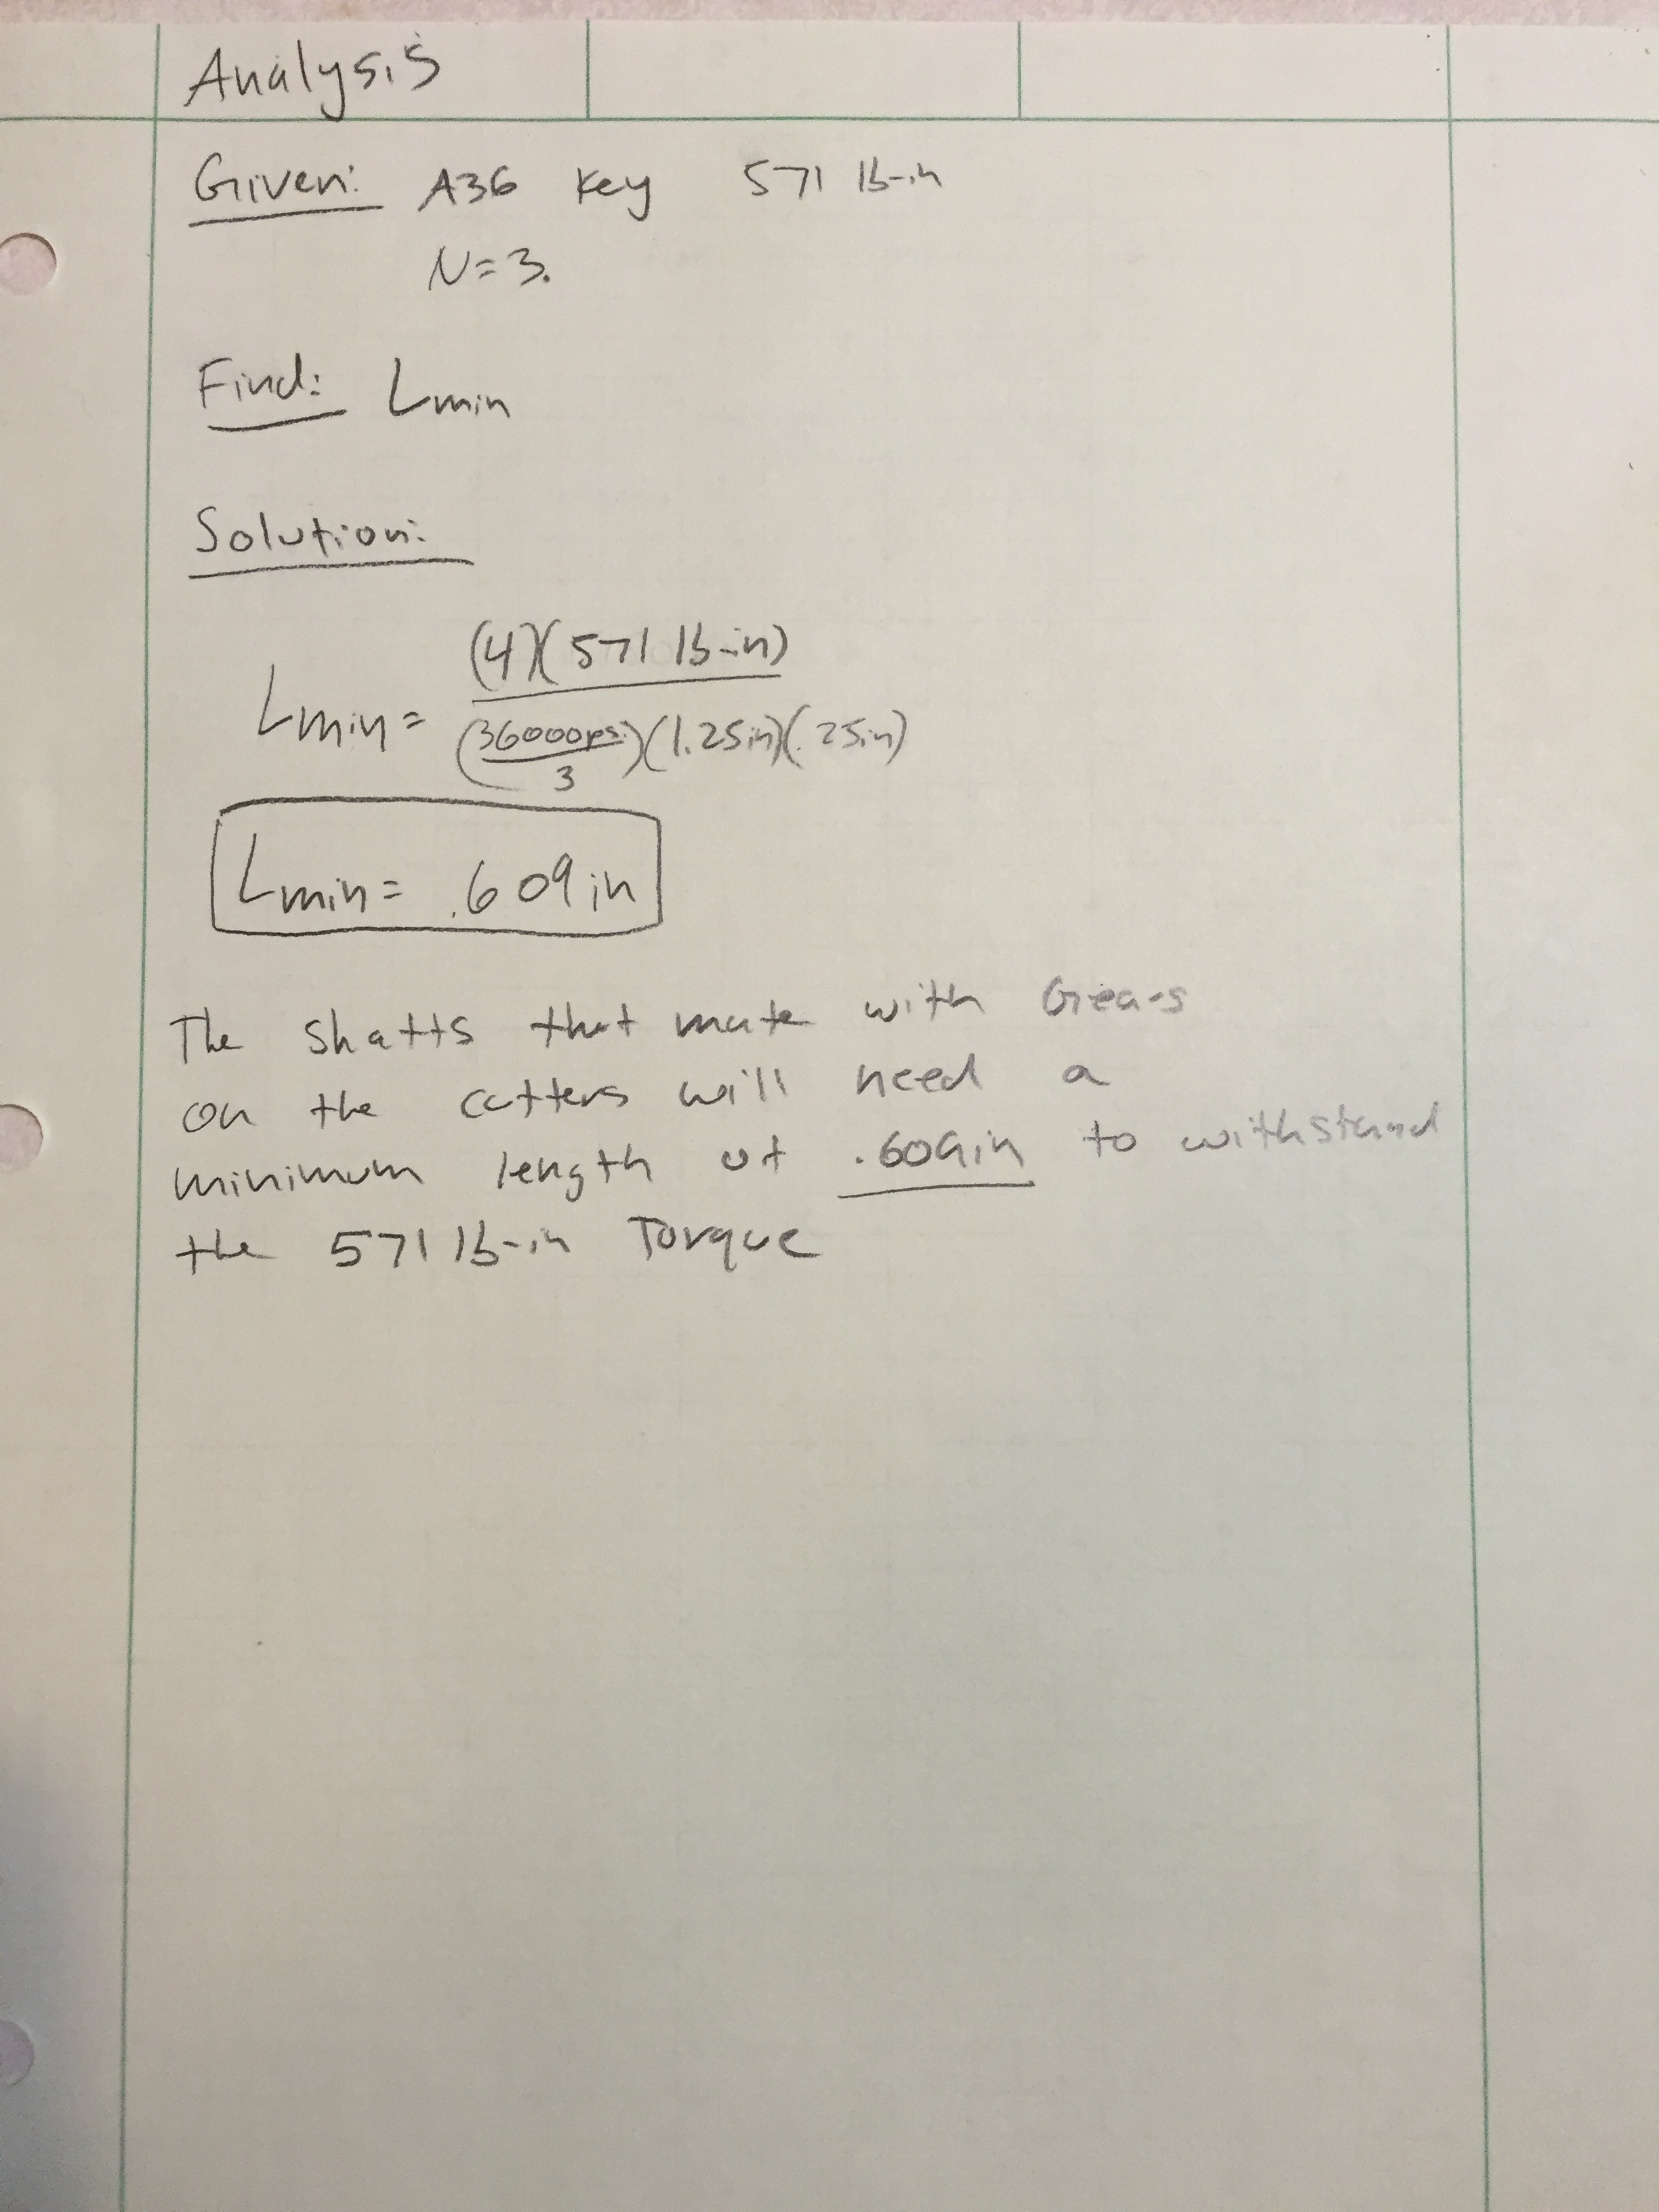 Analysis
Given: A36 Key 571 lb-in
N=3.
Find: Lmin
Solution:
Lmin= (4)(571 lb-in)
(36000psi)(1.25in)(.25in)
3
Lmin= .609in
The shafts that mate with Gears
on the cutters will need a
minimum length of .609in to withstand
the 571 lb-in Torque